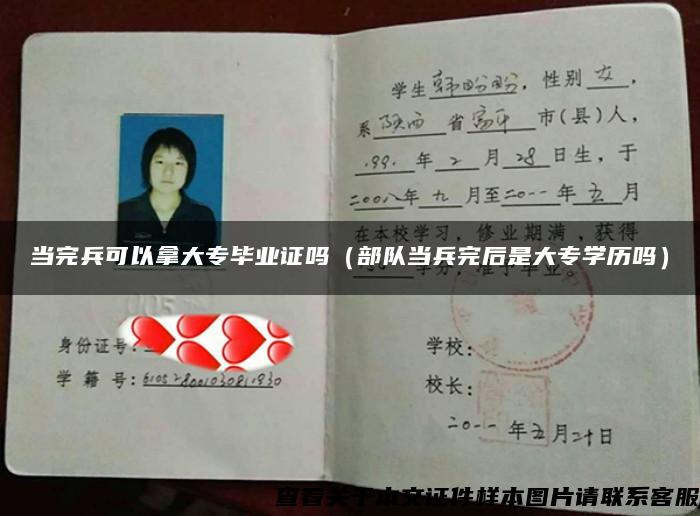 学生韩盼盼，性别女，
系陕西省富平市(县)人，
1991年2月28日生，于
二00八年九月至二0一一年五月
在本校学习，修业期满，获得
学分，准予毕业。
当完兵可以拿大专毕业证吗（部队当兵完后是大专学历吗）
身份证号：
学籍号：
学校：
校长：
二0一一年五月二十日
查看关于本文证件样本图片请联系客服